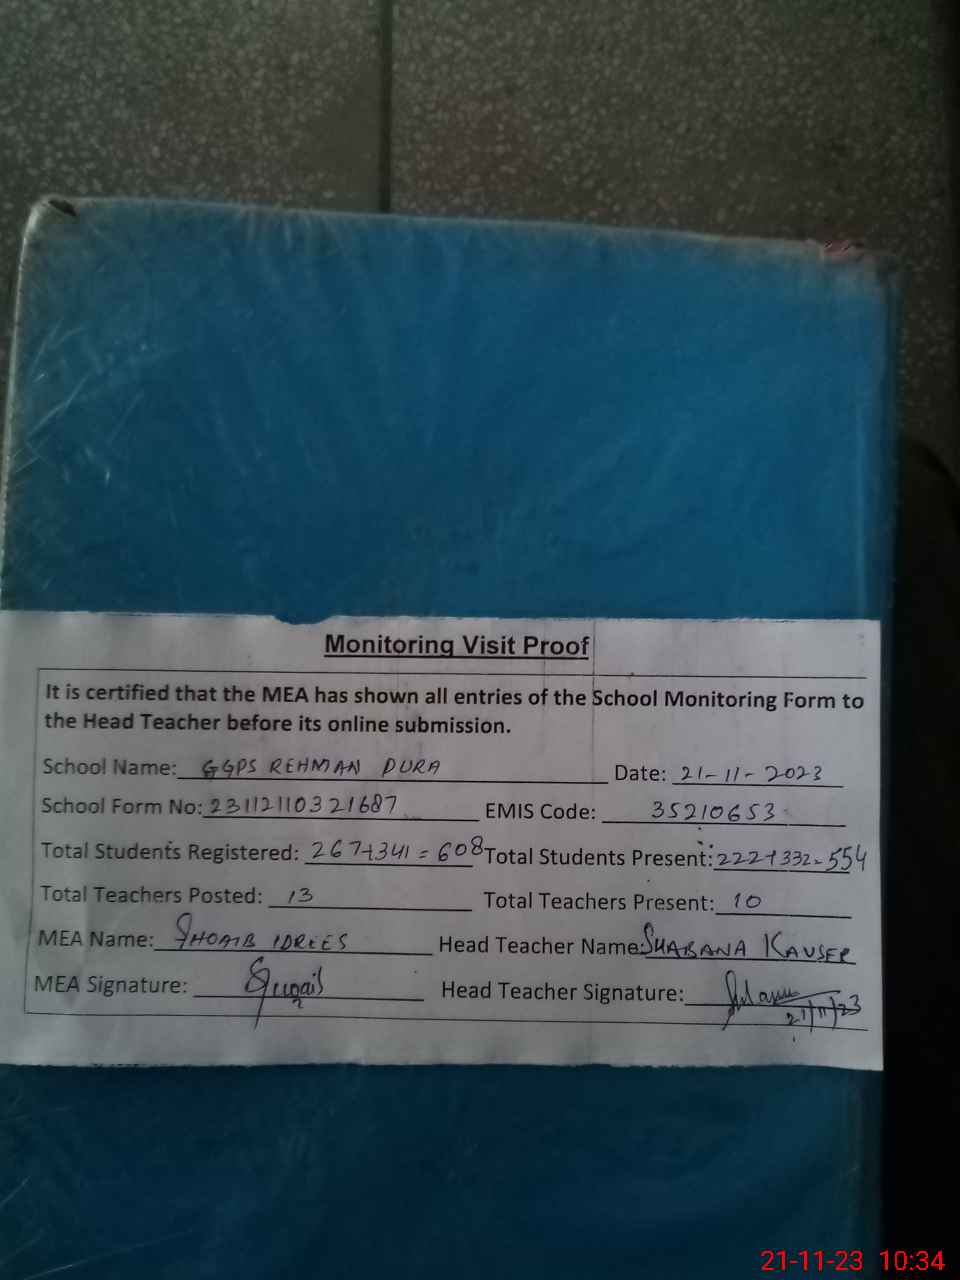 Monitoring Visit Proof
It is certified that the MEA has shown all entries of the School Monitoring Form to
the Head Teacher before its online submission.
School Name: GGPS REHMAN PURA Date: 21-11-2023
School Form No: 23112110321687 EMIS Code: 35210653
Total Students Registered: 267+341 = 608 Total Students Present: 222+332=554
Total Teachers Posted: 13 Total Teachers Present: 10
MEA Name: SHOAIB IDREES Head Teacher Name: SHABANA KAUSER
MEA Signature: Head Teacher Signature:
21/11/23
21-11-23 10:34